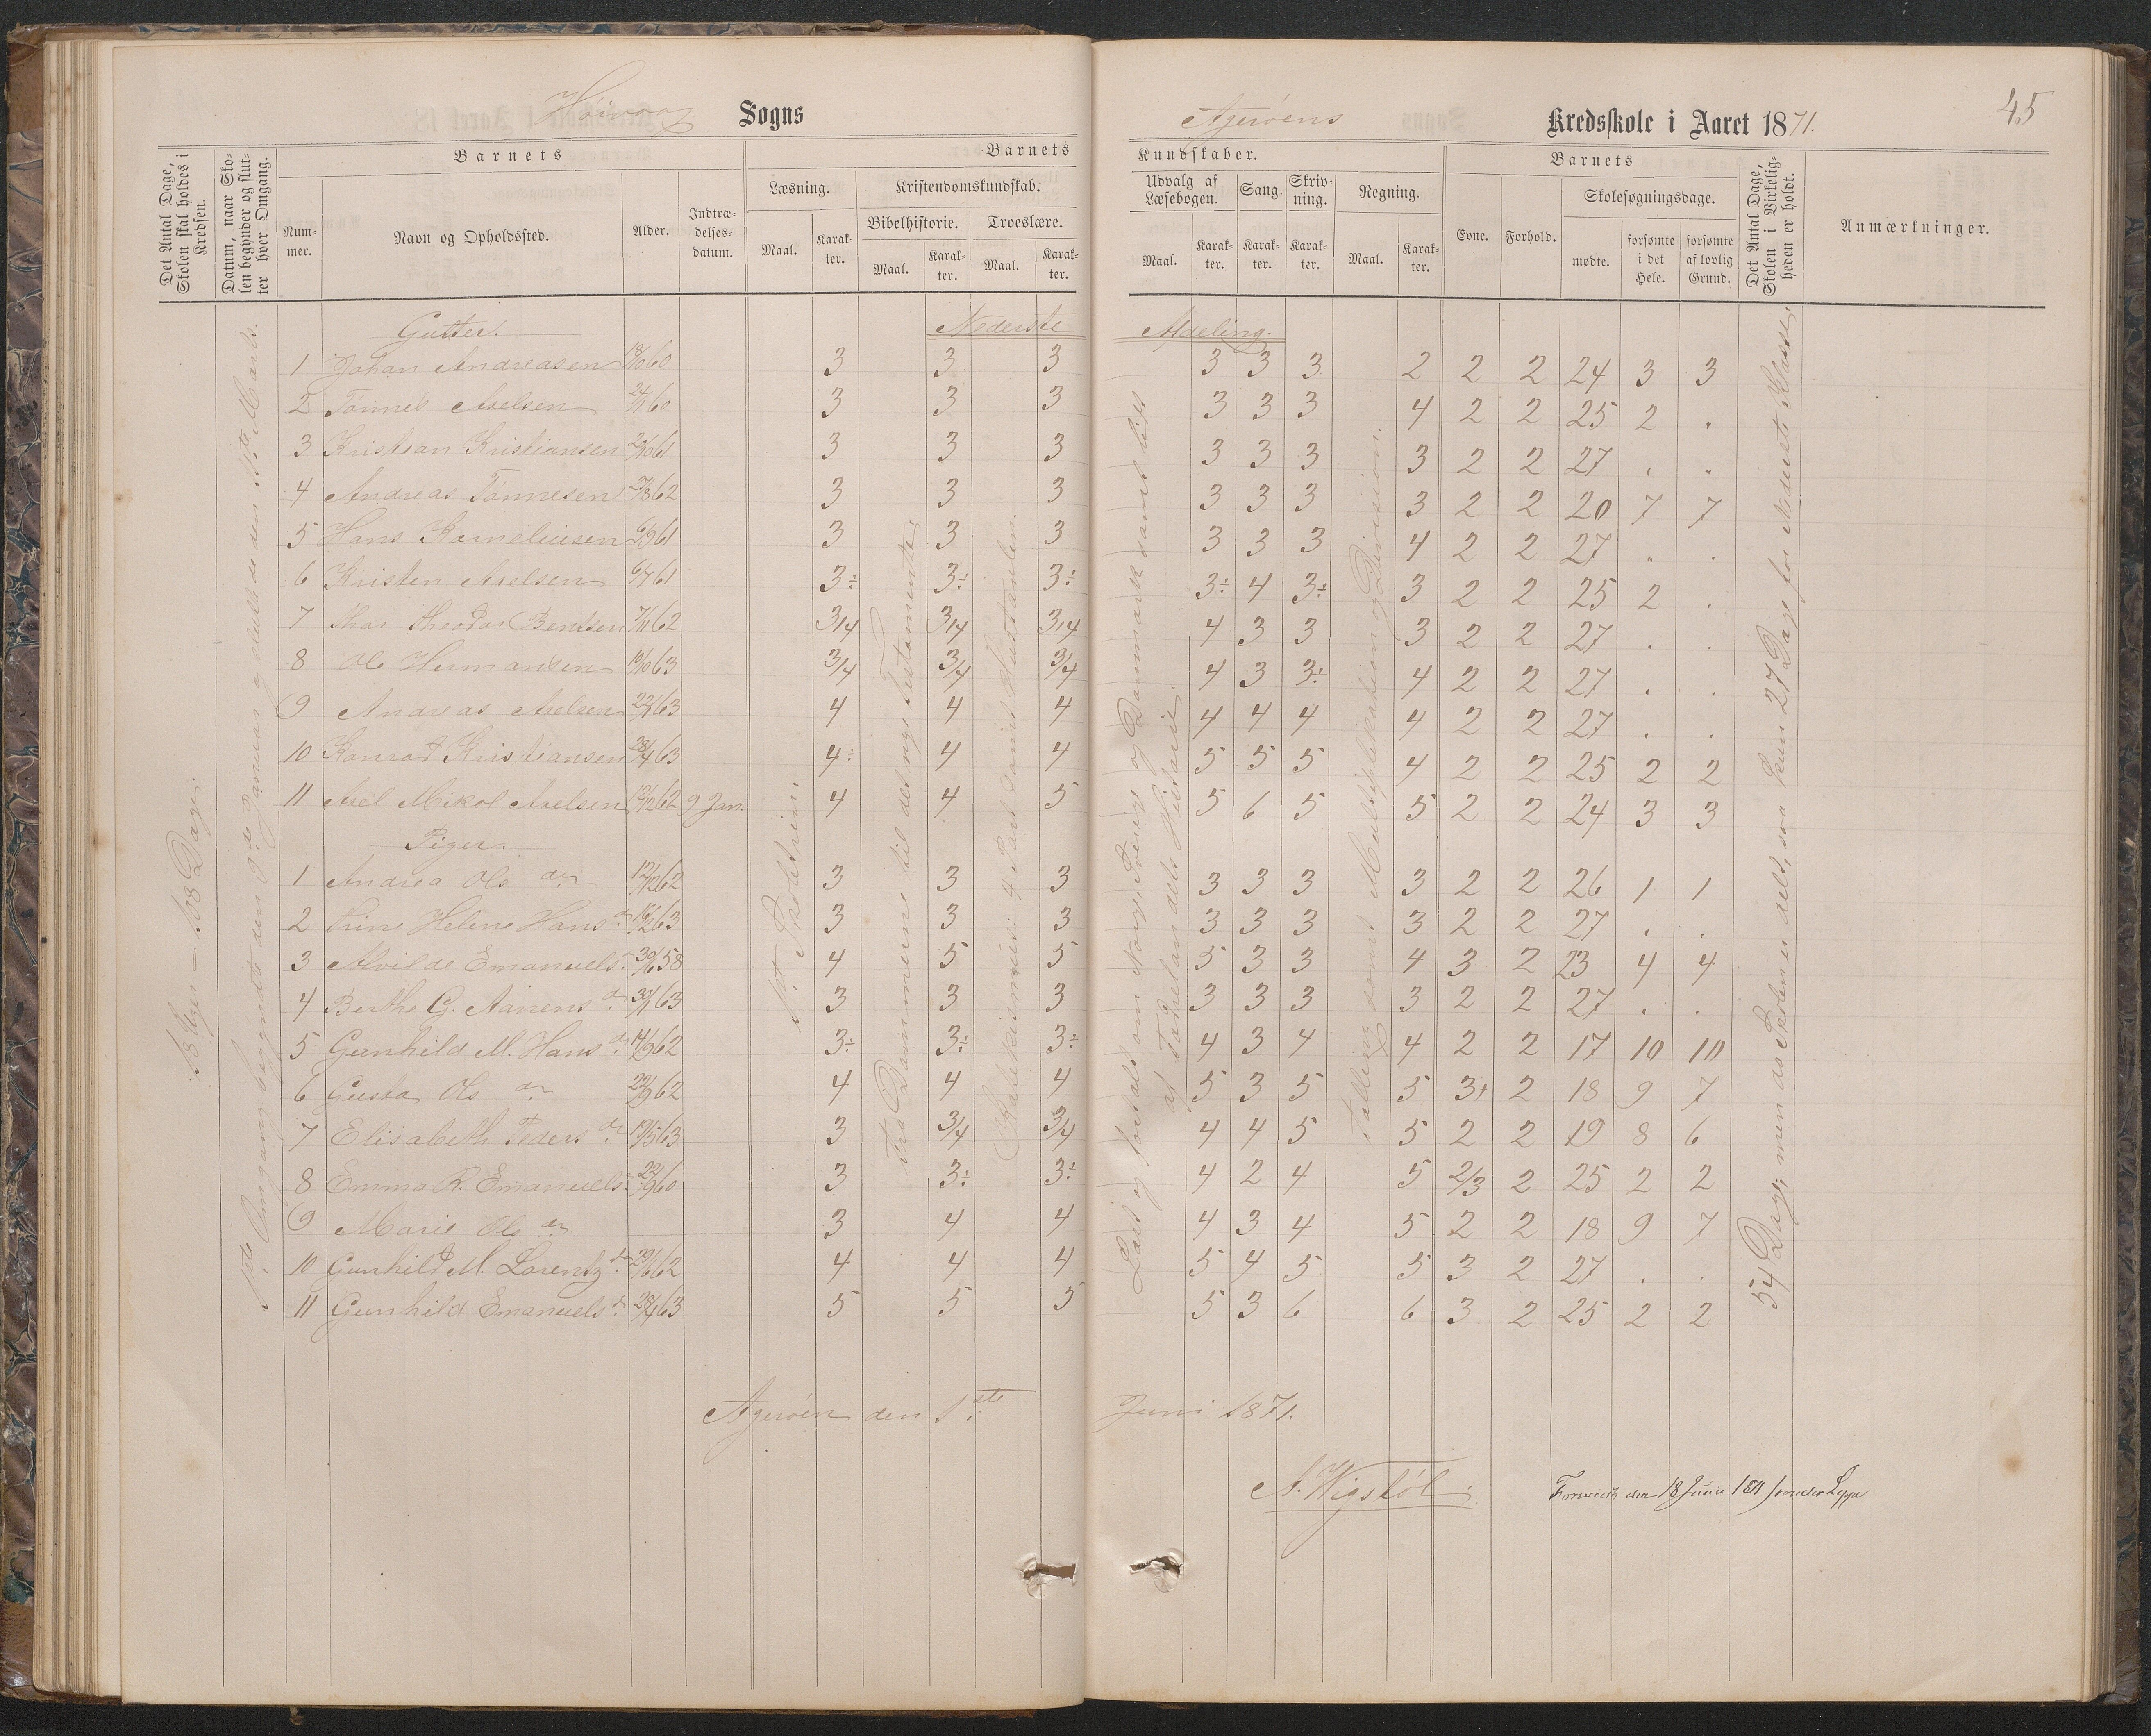 Høivaag Sogns
Agerøens Kredsskole i Aaret 1871.
45
Det Antal Dage, Skolen skal holdes i Kredsen.
Datum, naar Skolen begynder og slutter hver Omgang.
Barnets
Nummer.
Navn og Opholdssted.
Alder.
Indtrædelsesdatum.
Barnets Kundskaber.
Læsning.
Maal.
Karakter.
Kristendomskundskab.
Bibelhistorie.
Maal.
Karakter.
Troeslære.
Maal.
Karakter.
Udvalg af Læsebogen.
Maal.
Karakter.
Sang.
Karakter.
Skrivning.
Karakter.
Regning.
Maal.
Karakter.
Barnets
Evne.
Forhold.
Skolesøgningsdage.
mødte.
forsømte i det Hele.
forsømte af lovlig Grund.
Det Antal Dage, Skolen i Virkeligheden er holdt.
Anmærkninger.
Gutter. Nederste Afdeling.
1 Johan Andreasen 18/10 60 3 3 3 3 3 3 2 2 2 24 3 3
2 Tønnes Axelsen 24/11 60 3 3 3 3 3 3 4 2 2 25 2 .
3 Kristian Kristiansen 29/10 61 3 3 3 3 3 3 3 2 2 27 . .
4 Andreas Tønnesen 27/8 62 3 3 3 3 3 3 3 2 2 20 7 7
5 Hans Korneliusen 6/9 61 3 3 3 3 3 3 4 2 2 27 . .
6 Kristen Axelsen 6/7 61 3÷ 3÷ 3÷ 3÷ 4 3÷ 3 2 2 25 2 .
7 Thor Theodor Bentsen 7/11 62 3/4 3/4 3/4 4 3 3 3 2 2 27 . .
8 Ole Hermansen 19/10 63 3/4 3/4 3/4 4 3 3÷ 4 2 2 27 . .
9 Andreas Axelsen 22/4 63 4 4 4 4 4 4 4 2 2 27 . .
10 Konrad Kristiansen 28/4 63 4÷ 4 4 5 5 5 4 2 2 25 2 2
11 Axel Mikol Axelsen 12/12 62 9 Jan. 4 4 5 5 6 5 5 2 2 24 3 3
Piger.
1 Andrea Ols dr 12/12 62 3 3 3 3 3 3 3 2 2 26 1 1
2 Trine Helene Hans dr 16/2 63 3 3 3 3 3 3 3 2 2 27 . .
3 Alvilde Emanuels dr 30/6 58 4 5 5 5 3 3 4 3 2 23 4 4
4 Berthe G. Aanens dr 30/1 63 3 3 3 3 3 3 3 2 2 27 . .
5 Gunhild M. Hans dr 14/9 62 3÷ 3÷ 3÷ 4 3 4 4 2 2 17 10 10
6 Gusta Ols dr 22/9 62 4 4 4 5 3 5 5 3+ 2 18 9 7
7 Elisabeth Peders dr 19/5 63 3 3/4 3/4 4 4 5 5 2 2 19 8 6
8 Emma R. Emanuels dr 22/9 60 3 3÷ 3÷ 4 2 4 5 2/3 2 25 2 2
9 Marie Ols dr 3 4 4 4 3 4 5 2 2 18 9 7
10 Gunhild M. Lorentz dr 29/6 62 4 4 4 5 4 5 5 3 2 27 . .
11 Gunhild Emanuels dr 28/4 63 5 5 5 5 3 6 6 3 2 25 2 2
18 Uger — 108 Dage.
1ste Omgang begyndte den 9de Januar og sluttede den 11te Marts.
1ste Skoletrin.
Fra Dommerne til det nye Testamente.
Katekismus: 4 Part samt Hustavlen.
Læst og fortalt om Norge, Sverige og Danmark samt lidt af Fædrelandets Historie.
Tælling samt Multiplikation og Division.
54 Dage; men da Skolen er delt, saa kun 27 Dage for Nederste Klasse.
Agerøen den 1ste Juni 1871.
A. Wigstøl.
Forevist den 18 Juni 1871